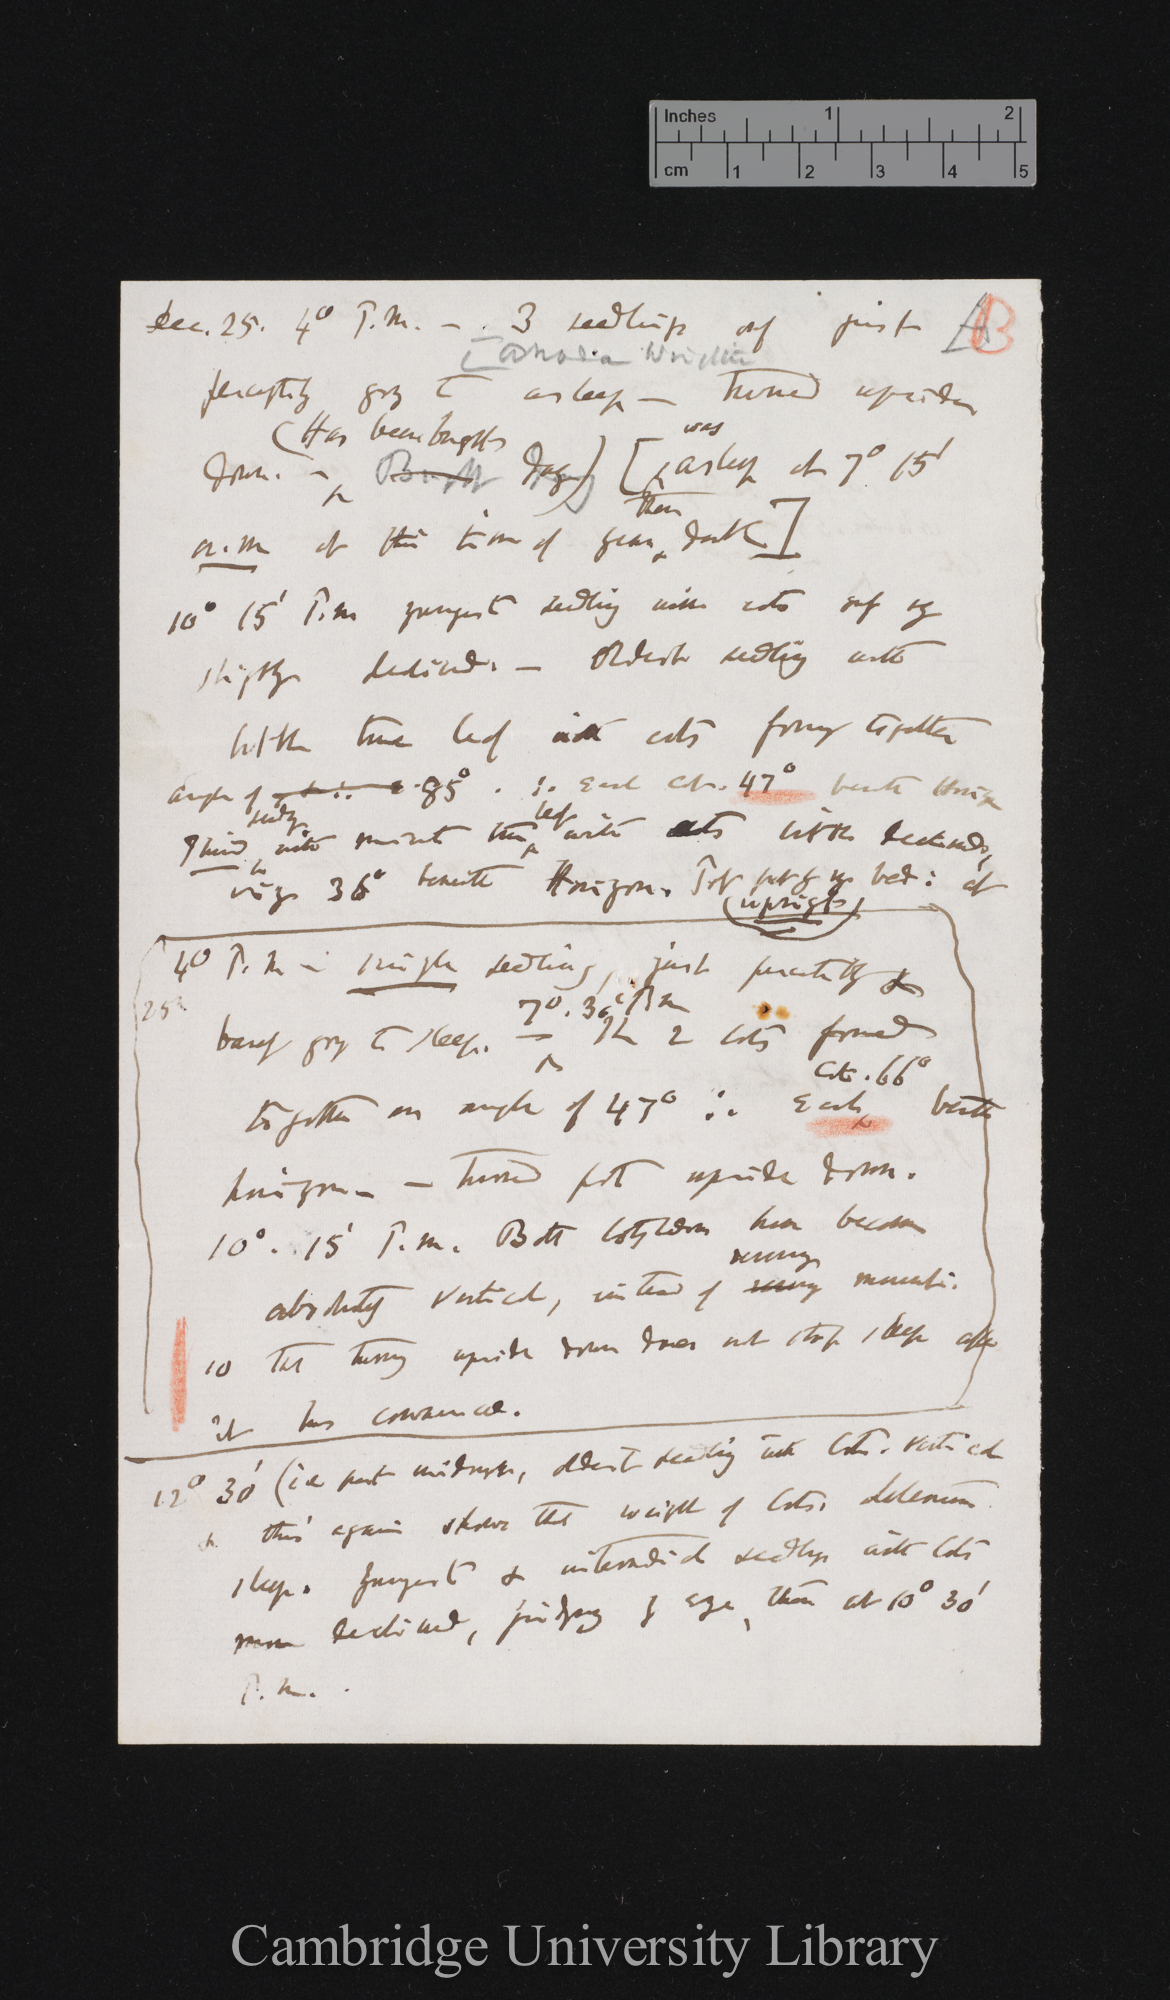 Inches 1 2
cm 1 2 3 4 5
Dec. 25. 4° P.M. — . 3 seedlings only just
B
perceptibly going to asleep — turned upside
(Has been bright
was
down. — day) [asleep at 7° 15'
then
a.m at this time of year, dark]
10° 15' P.m youngest seedling with cots only
slightly declined. — Oldest seedling with
little true leaf with cots forming together
angle of 85° . ∴ Each cot. 47° beneath Horizon
seedg. leaf
Third with minute true with cots little declined,
viz 36° beneath Horizon. Pot put by my bed : at
(upright)
4° P.M — single seedling, just perceptibly &
25
7°. 30' P.m
barely going to sleep. — The 2 cots formed
cot. 66°
together an angle of 47° ∴ Each beneath
horizon — — turned pot upside down.
10°. 15' P.m. Both cotyledons have become
absolutely vertical, instead of
so that turning upside down does not stop sleep after
it has commenced.
12° 30' (ie past midnight, oldest seedling with Cots. vertical
& this again shows that weight of Cots. determines
sleep. Youngest & intermediate seedlings with Cots
more declined, judging by eye, than at 10° 30'
P.m.
Cambridge University Library